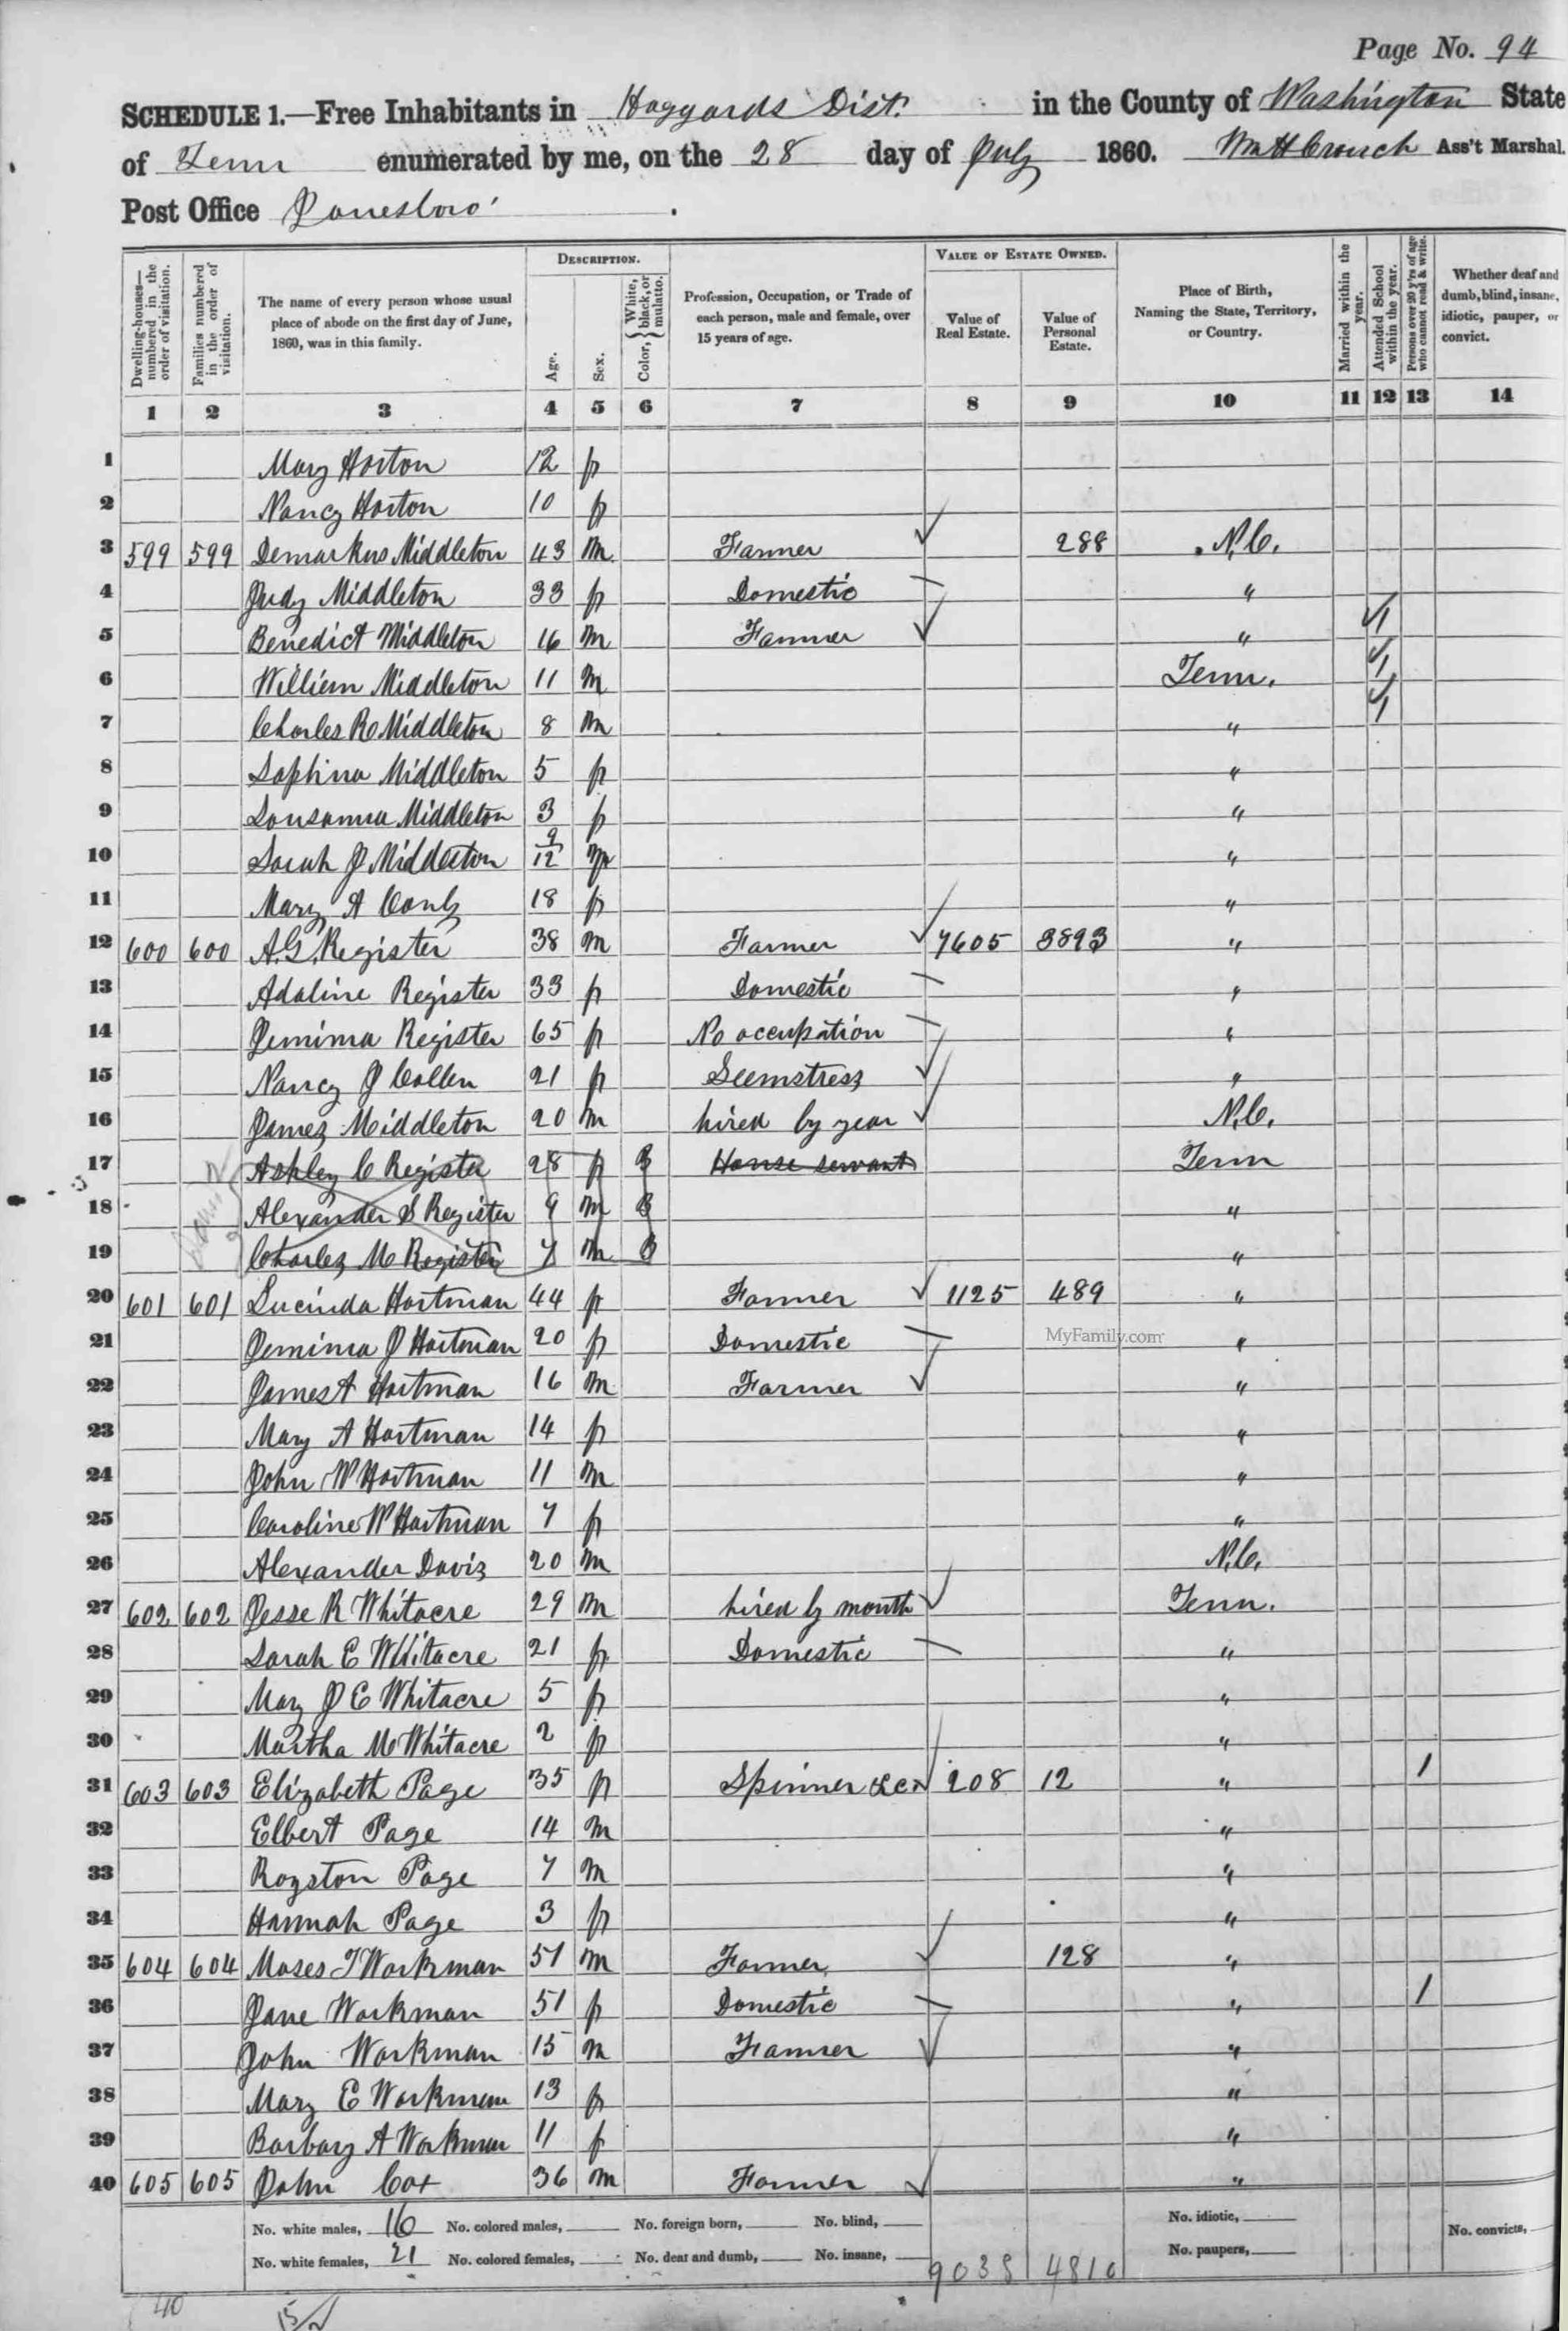 Page No. 94
SCHEDULE 1.—Free Inhabitants in Haggards Dist. in the County of Washington State
of Tenn enumerated by me, on the 28 day of July 1860. Wm H Crouch Ass't Marshal.
Post Office Jonesboro'
Dwelling-houses—numbered in the order of visitation. Families numbered in the order of visitation. The name of every person whose usual place of abode on the first day of June, 1860, was in this family. DESCRIPTION. Age. Sex. Color, { White, black, or mulatto. Profession, Occupation, or Trade of each person, male and female, over 15 years of age. VALUE OF ESTATE OWNED. Value of Real Estate. Value of Personal Estate. Place of Birth, Naming the State, Territory, or Country. Married within the year. Attended School within the year. Persons over 20 y'rs of age who cannot read & write. Whether deaf and dumb, blind, insane, idiotic, pauper, or convict.
1 2 3 4 5 6 7 8 9 10 11 12 13 14
1 Mary Horton 12 f
2 Nancy Horton 10 f
3 599 599 Demarkus Middleton 43 m Farmer 288 N.C.
4 Judy Middleton 33 f Domestic "
5 Benedict Middleton 16 m Farmer " 1
6 William Middleton 11 m Tenn. 1
7 Charles R Middleton 8 m " 1
8 Saphina Middleton 5 f "
9 Lousanna Middleton 3 f "
10 Sarah J Middleton 9/12 "
11 Mary A 18 f "
12 600 600 A.G. Register 38 m Farmer 7605 3893 "
13 Adaline Register 33 f Domestic "
14 Jemima Register 65 f No occupation "
15 Nancy J Collen 21 f Seemstress "
16 James Middleton 20 m hired by year N.C.
17 Ashley C Register 28 f B House servant Tenn
18 Alexander S Register 9 m B "
19 Charles M Register 7 m B "
20 601 601 Lucinda Hartman 44 f Farmer 1125 489 "
21 Jemima J Hartman 20 f Domestic MyFamily.com "
22 James A Hartman 16 m Farmer "
23 Mary A Hartman 14 f "
24 John W Hartman 11 m "
25 Caroline W Hartman 7 f "
26 Alexander Davis 20 m N.C.
27 602 602 Jesse R Whitacre 29 m hired by month Tenn.
28 Sarah E Whitacre 21 f Domestic "
29 Mary J E Whitacre 5 f "
30 Martha M Whitacre 2 f "
31 603 603 Elizabeth Page 35 f Spinner &c 208 12 " 1
32 Elbert Page 14 m "
33 Royston Page 7 m "
34 Hannah Page 3 f "
35 604 604 Moses T Workman 51 m Farmer 128 "
36 Jane Workman 51 f Domestic " 1
37 John Workman 15 m Farmer "
38 Mary E Workman 13 f "
39 Barbary A Workman 11 f "
40 605 605 John Cox 36 m Farmer "
No. white males, 16 No. colored males, No. foreign born, No. blind, No. idiotic, No. convicts,
No. white females, 21 No. colored females, No. deaf and dumb, No. insane, 9038 4810 No. paupers,
40